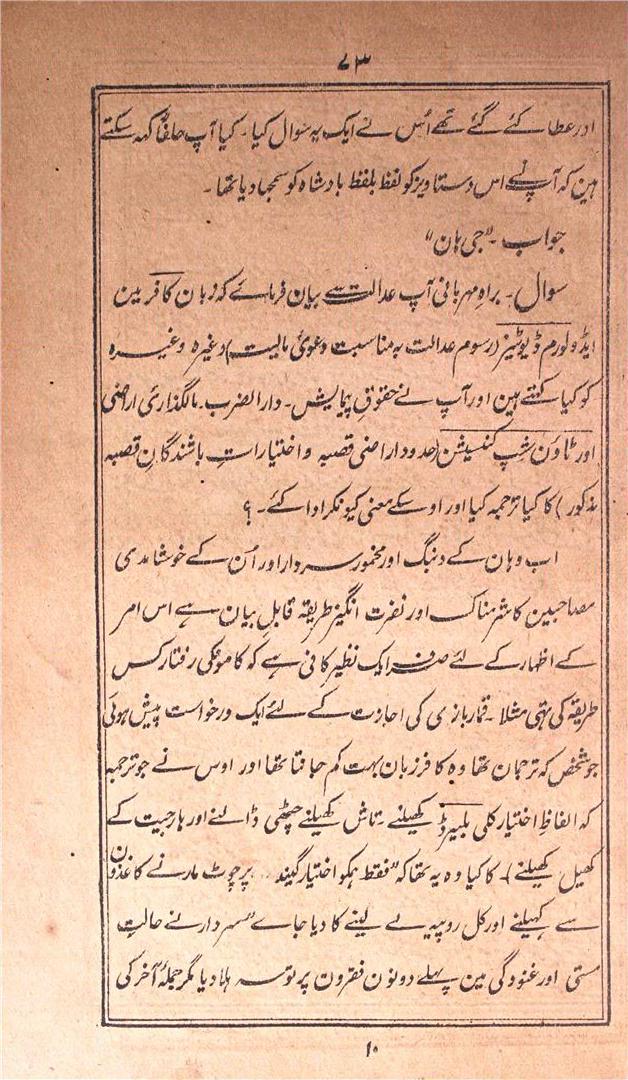 ۷۳
اور عطا کئے گئے تھے اُس نے ایک یہ سوال کیا۔ کیا آپ حلفًا کہہ سکتے
ہین کہ آپ نے اس دستاویز کو لفظ بلفظ بادشاہ کو سمجھا دیا تھا۔
جواب۔ "جی ہان"
سوال۔ براہِ مہربانی آپ عدالت سے بیان فرمائے کہ زبان کافر مین
ایڈولورم ڈیوٹیز (رسوم عدالت بہ مناسبت دعویٰ مالیت) وغیرہ وغیرہ
کو کیا کہتے ہین اور آپ نے حقوقِ پیمایش۔ دار الضرب۔ مالگذاری اراضی
اور ٹاؤن شپ کنسیشن (حدود اراضی قصبہ و اختیاراتِ باشندگانِ قصبہ
مذکور) کا کیا ترجمہ کیا اور اوسکے معنی کیونکر ادا کئے۔ ؟
اب وہان کے دبنگ اور مخمور سردار اور اُن کے خوشامدی
مصاحبین کا شرمناک اور نفرت انگیز طریقہ قابلِ بیان ہے اس امر
کے اظہار کے لئے صرف ایک نظیر کافی ہے کہ کامونکی رفتار کس
طریقہ کی تہی مثلا۔ قمار بازی کی اجازت کے لئے ایک درخواست پیش ہوئی
جو شخص کہ ترجمان تھا وہ کافر زبان بہت کم جانتا تھا اور اوس نے جو ترجمہ
کہ الفاظِ اختیار کلی بلیرڈ کھیلنے۔ تاش کھیلنے چٹھی ڈالنے اور ہار جیت کے
کھیل کھیلنے) کا کیا وہ یہ تھا کہ "فقط ہمکو اختیار گیند .. پر چوٹ مارنے کاغذون
سے کھیلنے اور کل روپیہ لے لینے کا دیا جاے" سردار نے حالتِ
مستی اور غنودگی مین پہلے دونون فقرون پر تو سر ہلا دیا مگر جملۂ آخر کی
۱۰